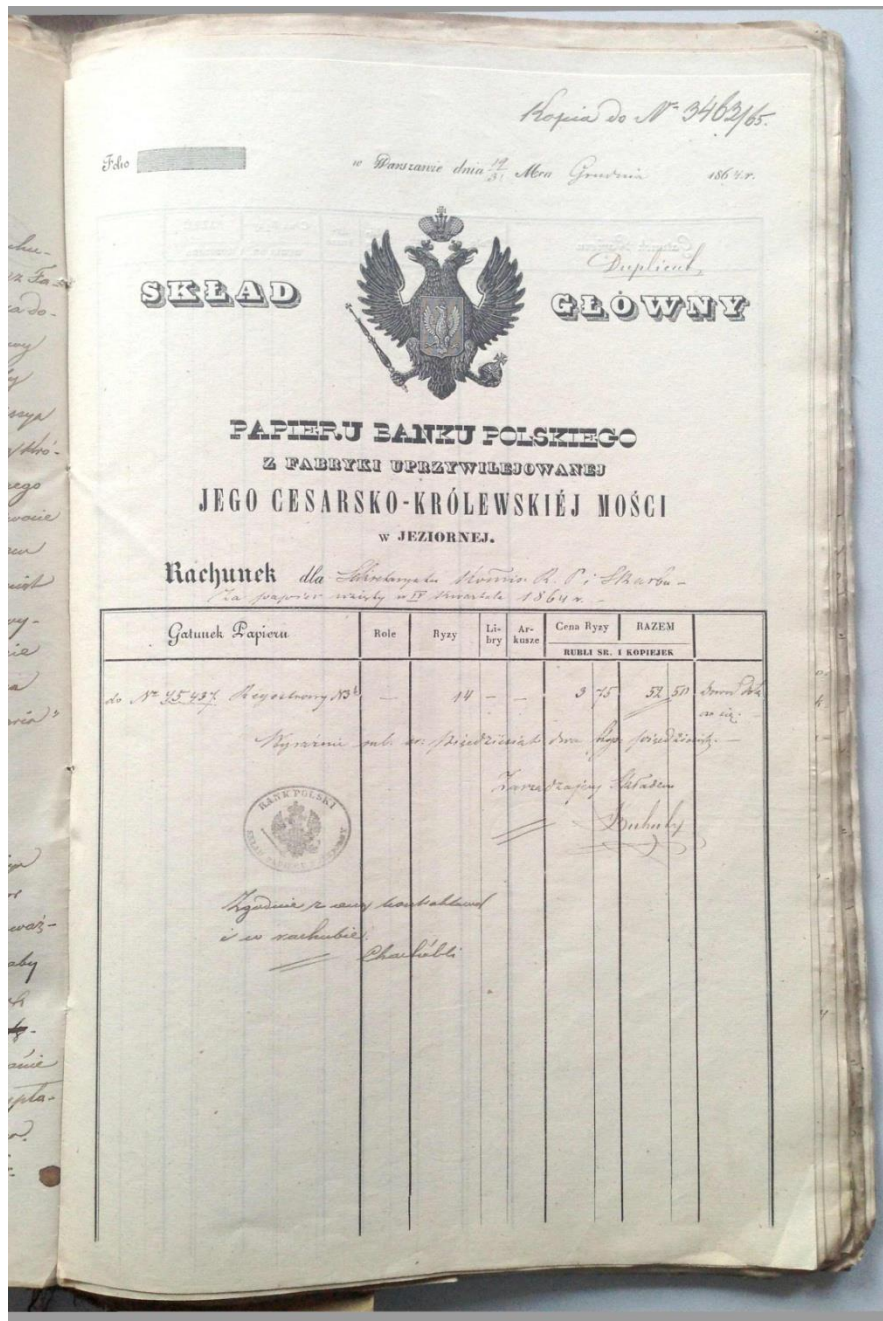 Kopia do Nº 3463/65.
Folio
w Warszawie dnia 19/31 Mca Grudnia 1864 r.
Duplicat
SKŁAD GŁÓWNY
PAPIERU BANKU POLSKIEGO
Z FABRYKI UPRZYWILEJOWANEJ
JEGO CESARSKO-KRÓLEWSKIÉJ MOŚCI
w JEZIORNEJ.
Rachunek dla Sekretaryatu Kommis. R. P. i Skarbu
Za papier wzięty w IV Kwartale 1864 r.
Gatunek Papieru Role Ryzy Libry Arkusze Cena Ryzy RAZEM
RUBLI SR. I KOPIEJEK
do Nº 45,437 Regestrowy — 14 — — 3 75 52 50
Wyraźnie rub. sr. pięćdziesiąt dwa kop. pięćdziesiąt.
Zarządzający Składem
BANK POLSKI
Zgodnie z
i w rachubie